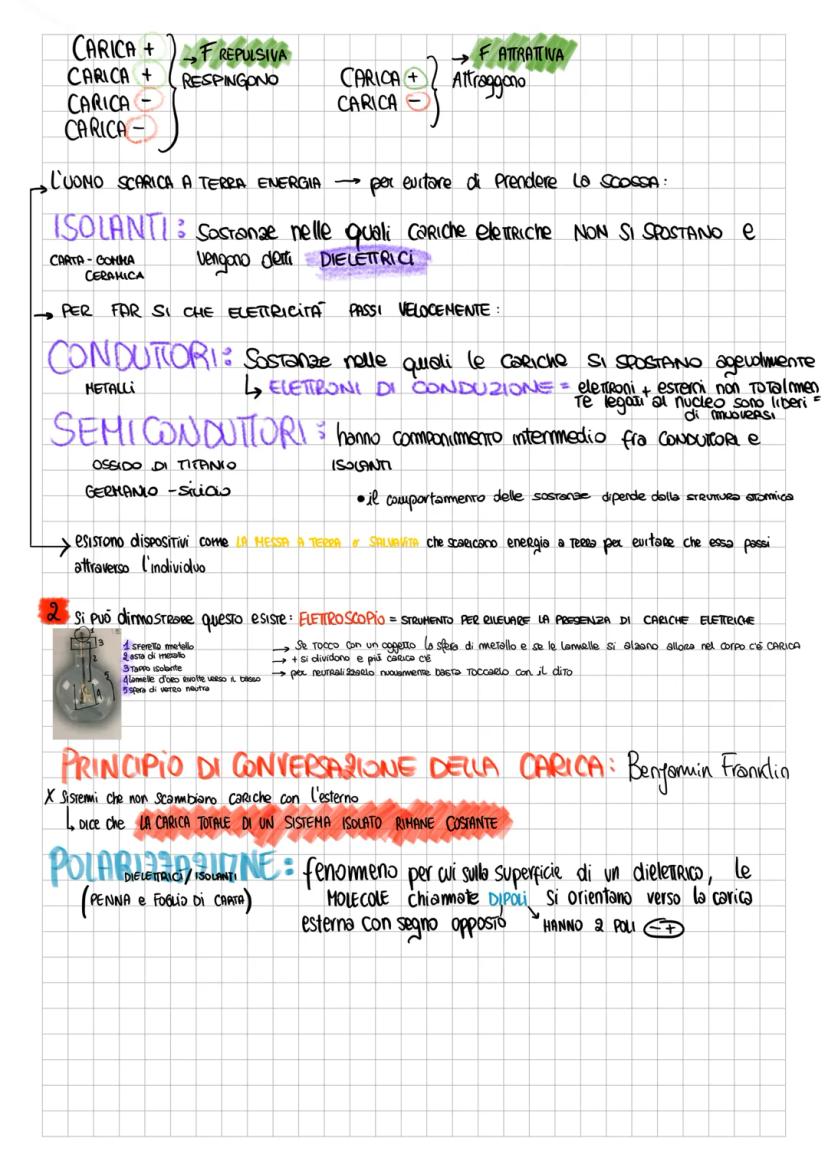 CARICA +
CARICA +
CARICA -
CARICA -
→ F REPULSIVA
RESPINGONO
CARICA +
CARICA -
→ F ATTRATTIVA
Attraggono
L'UOMO SCARICA A TERRA ENERGIA → per evitare di prendere la scossa:
ISOLANTI: Sostanze nelle quali cariche elettriche NON SI SPOSTANO e
CARTA - GOMMA
CERAMICA
vengono detti DIELETTRICI
→ PER FAR SI CHE ELETTRICITÀ PASSI VELOCEMENTE:
CONDUTTORI: Sostanze nelle quali le cariche SI SPOSTANO agevolmente
METALLI
↳ ELETTRONI DI CONDUZIONE = elettroni + esterni non totalmen
te legati al nucleo sono liberi =
di muoversi
SEMICONDUTTORI: hanno componimento intermedio fra CONDUTTORI e
OSSIDO DI TITANIO
ISOLANTI
GERMANIO - Silicio
• il comportamento delle sostanze dipende dalla struttura atomica
→ esistono dispositivi come LA MESSA A TERRA o SALVAVITA che scaricano energia a terra per evitare che essa passi
attraverso l'individuo
2 Si può dimostrare questo esiste: ELETTROSCOPIO = STRUMENTO PER RILEVARE LA PRESENZA DI CARICHE ELETTRICHE
1 sferetta metallo
2 asta di metallo
3 Tappo isolante
4 lamelle d'oro rivolte verso il basso
5 sfera di vetro neutra
→ Se tocco con un oggetto la sfera di metallo e se le lamelle si alzano allora nel corpo c'è CARICA
→ + si dividono e più carica c'è
→ per neutralizzarlo nuovamente basta toccarlo con il dito
PRINCIPIO DI CONVERSAZIONE DELLA CARICA: Benjamin Franklin
X Sistemi che non scambiano cariche con l'esterno
↳ DICE che LA CARICA TOTALE DI UN SISTEMA ISOLATO RIMANE COSTANTE
POLARIZZAZIONE: fenomeno per cui sulla superficie di un dielettrico, le
DIELETTRICI / ISOLANTI
(PENNA e FOGLIO DI CARTA)
MOLECOLE chiamate DIPOLI si orientano verso la carica
esterna con segno opposto
HANNO 2 POLI - +